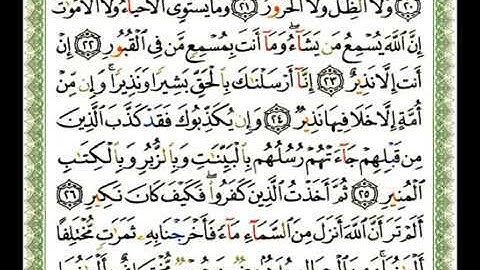 ٢٠ وَلَا ٱلظِّلُّ وَلَا ٱلْحَرُورُ ٢١ وَمَا يَسْتَوِى ٱلْأَحْيَآءُ وَلَا ٱلْأَمْوَٰتُ
إِنَّ ٱللَّهَ يُسْمِعُ مَن يَشَآءُ ۖ وَمَآ أَنتَ بِمُسْمِعٍ مَّن فِى ٱلْقُبُورِ ٢٢ إِنْ
أَنتَ إِلَّا نَذِيرٌ ٢٣ إِنَّآ أَرْسَلْنَٰكَ بِٱلْحَقِّ بَشِيرًا وَنَذِيرًا ۚ وَإِن مِّنْ
أُمَّةٍ إِلَّا خَلَا فِيهَا نَذِيرٌ ٢٤ وَإِن يُكَذِّبُوكَ فَقَدْ كَذَّبَ ٱلَّذِينَ
مِن قَبْلِهِمْ جَآءَتْهُمْ رُسُلُهُم بِٱلْبَيِّنَٰتِ وَبِٱلزُّبُرِ وَبِٱلْكِتَٰبِ
ٱلْمُنِيرِ ٢٥ ثُمَّ أَخَذْتُ ٱلَّذِينَ كَفَرُوا۟ ۖ فَكَيْفَ كَانَ نَكِيرِ ٢٦
أَلَمْ تَرَ أَنَّ ٱللَّهَ أَنزَلَ مِنَ ٱلسَّمَآءِ مَآءً فَأَخْرَجْنَا بِهِۦ ثَمَرَٰتٍ مُّخْتَلِفًا